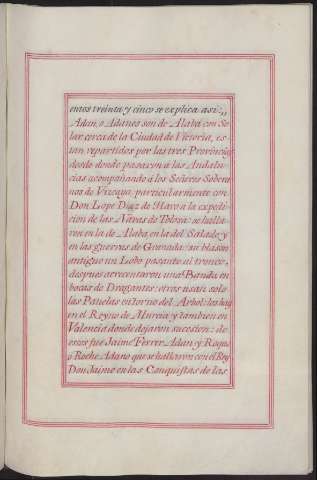 entos treinta y cinco se explica asi: „
Adan, o Adanes son de Alaba con So
lar cerca de la Ciudad de Victoria, es
tan repartidos por las tres Provincias
desde donde pasaron á las Andalu
cias acompañando á los Señores Sobera
nos de Vizcaya, particularmente con
Don Lope Diaz de Haro a la expedi
cion de las Navas de Tolosa: se halla
ron en la de Alaba, en la del Salado, y
en las guerras de Granada: su blason
antiguo un Lobo pasante al tronco,
despues acrecentaron una Banda en
bocas de Dragantes: otros usan solo
las Panelas en torno del Arbol: los hay
en el Reyno de Murcia y tambien en
Valencia donde dejaron sucesion: de
esos fue Jaime Ferrer Adan y Roque
ó Roche Adano que se hallaron con el Rey
Don Jaime en las Conquistas de las